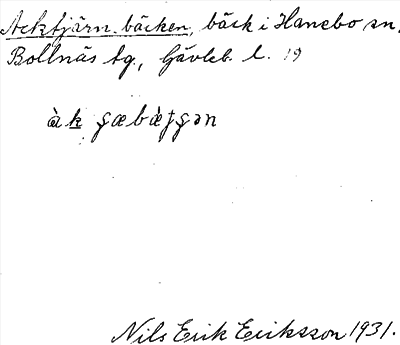 Acktjärn bäcken, bäck i Hanebo sn,
Bollnäs tg., Gävleb. l. 19
Nils Erik Eriksson 1931.